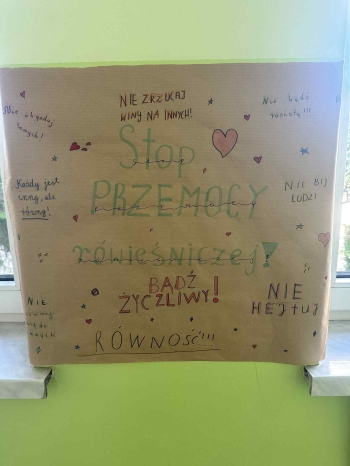 NIE ZRZUCAJ
WINY NA INNYCH!
Nie bądź
rasistą!!!
Stop
PRZEMOCY
rówieśniczej!
Każdy jest
inny, ale
równy!
NIE BIJ
LUDZI
BĄDŹ
ŻYCZLIWY!
NIE
HEJTUJ
NIE
RÓWNOŚĆ!!!